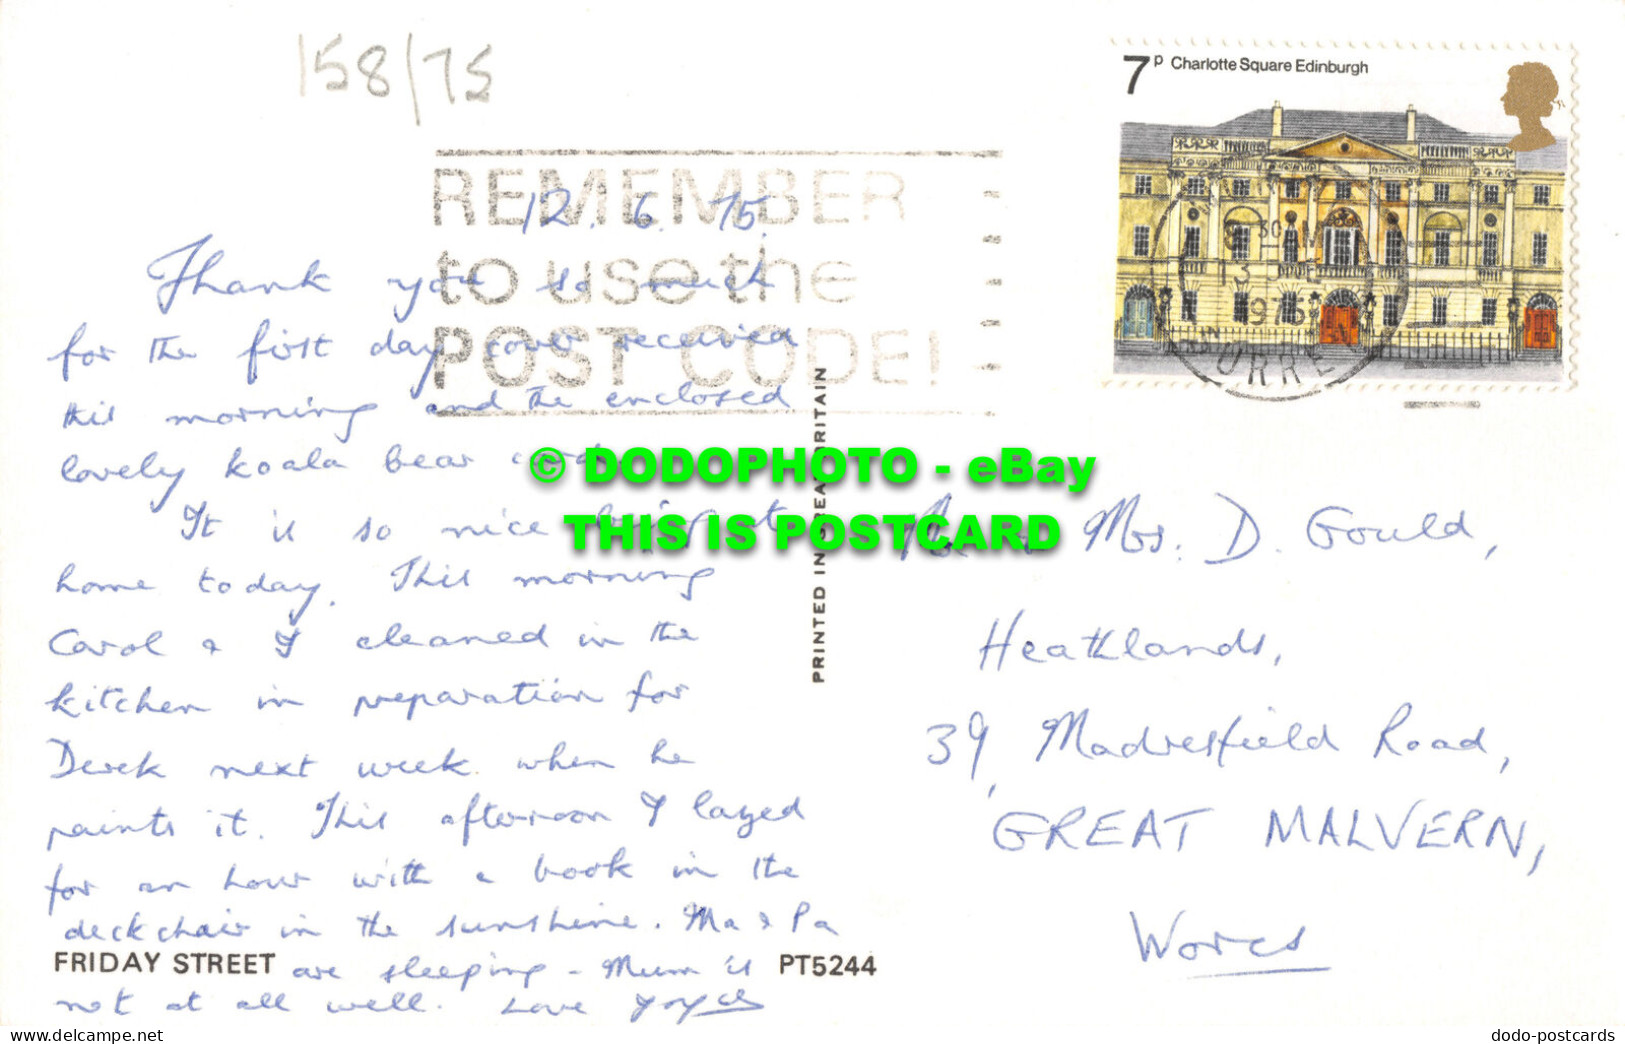 158/75
7P Charlotte Square Edinburgh
REMEMBER
to use the
POST CODE!
30
13
1975
SURREY
12.6.75.
Thank you so much
for the first day cover received
this morning and the enclosed
lovely koala bear card
It is so nice being at
home today. This morning
Carol & I cleaned in the
kitchen in preparation for
Derek next week when he
paints it. This afternoon I lazed
for an hour with a book in the
deckchair in the sunshine. Ma & Pa
are sleeping - Mum is
not at all well. Love Joyce
FRIDAY STREET
PT5244
PRINTED IN GREAT BRITAIN
© DODOPHOTO - eBay
THIS IS POSTCARD
Mr & Mrs. D. Gould,
Heathlands,
39, Madresfield Road,
GREAT MALVERN,
Worcs
www.delcampe.net
dodo-postcards